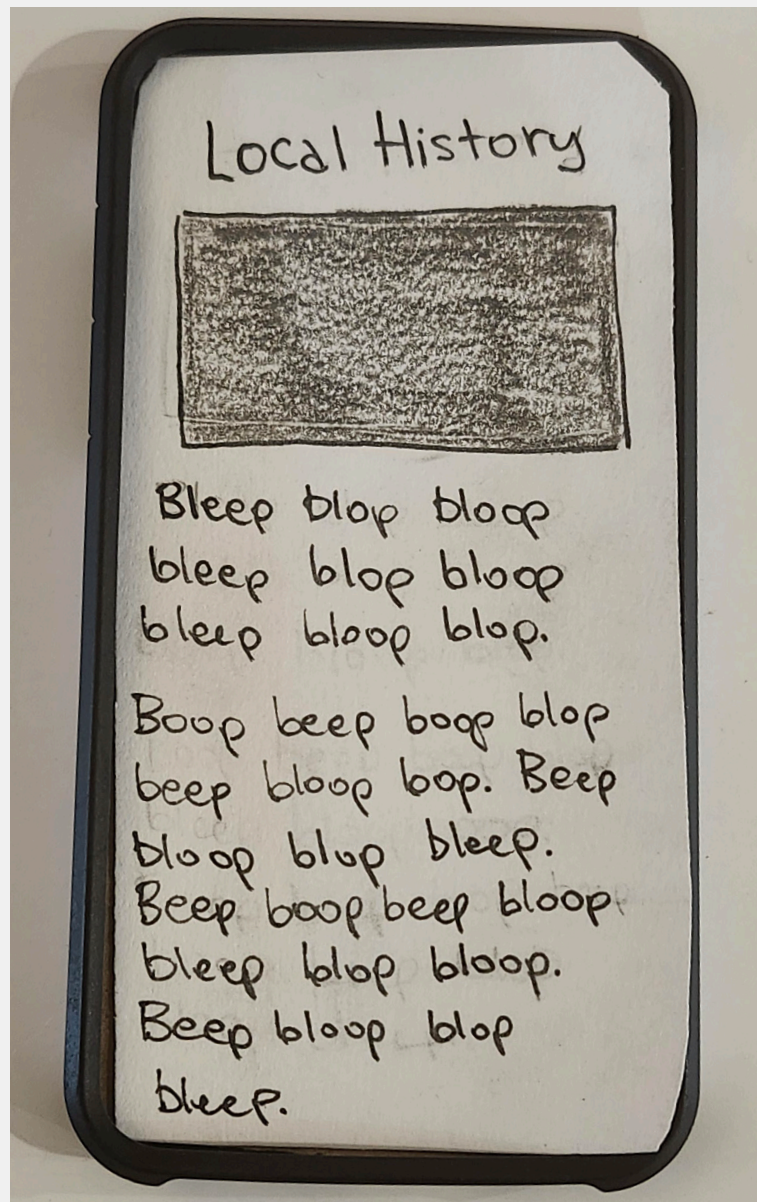 Local History
Bleep blop bloop
bleep blop bloop
bleep bloop blop.
Boop beep boop blop
beep bloop bop. Beep
bloop blop bleep.
Beep boop beep bloop
bleep blop bloop.
Beep bloop blop
bleep.